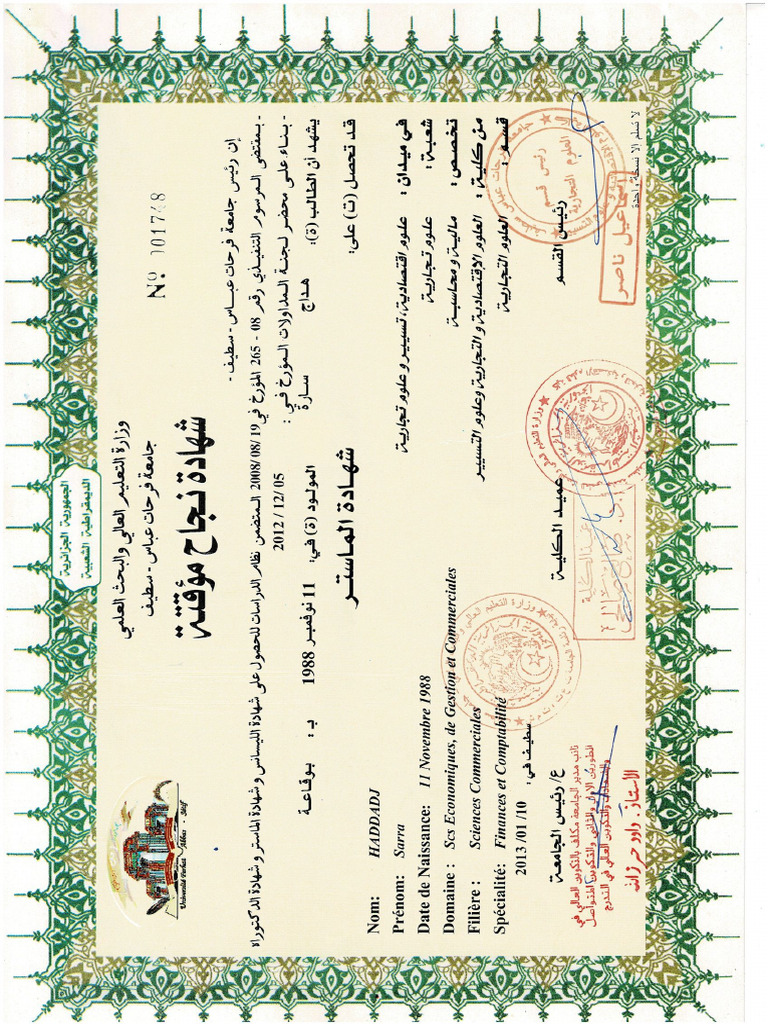 الجمهورية الجزائرية
الديمقراطية الشعبية
وزارة التعليم العالي والبحث العلمي
جامعة فرحات عباس - سطيف
Université Ferhat Abbas - Sétif
Nº 001748
شهادة نجاح مؤقتة
إن رئيس جامعة فرحات عباس - سطيف -
- بمقتضى المرسوم التنفيذي رقم 08 - 265 المؤرخ في 2008/08/19 المتضمن نظام الدراسات للحصول على شهادة الليسانس و شهادة الماستر و شهادة الدكتوراه
- بناء على محضر لجنة المداولات المؤرخ في : 2012 / 12 / 05
يشهد أن الطالب (ة): هداج سارة المولود (ة) في: 11 نوفمبر 1988 بـ : بوقاعة
قد تحصل (ت) على: شهادة الماستر
في ميدان : علوم اقتصادية، تسيير و علوم تجارية
شعبة : علوم تجارية
تخصص : مالية و محاسبة
من كلية : العلوم الاقتصادية و التجارية وعلوم التسيير
قسم : العلوم التجارية
Nom: HADDADJ
Prénom: Sarra
Date de Naissance: 11 Novembre 1988
Domaine : Scs Economiques, de Gestion et Commerciales
Filière : Sciences Commerciales
Spécialité: Finances et Comptabilité
سطيف في : 2013 /01 /10
رئيس القسم
عميد الكلية
ع/ رئيس الجامعة
رئيس قسم
العلوم التجارية
اسماعيل ناصر
عميد الكلية
نائب مدير الجامعة مكلف بالتكوين العالي في
الطورين الأول والثاني والتكوين المتواصل
والشهادات والتكوين العالي في التدرج
الأستاذ. داود حرزالله
لا تسلم إلا نسخة واحدة